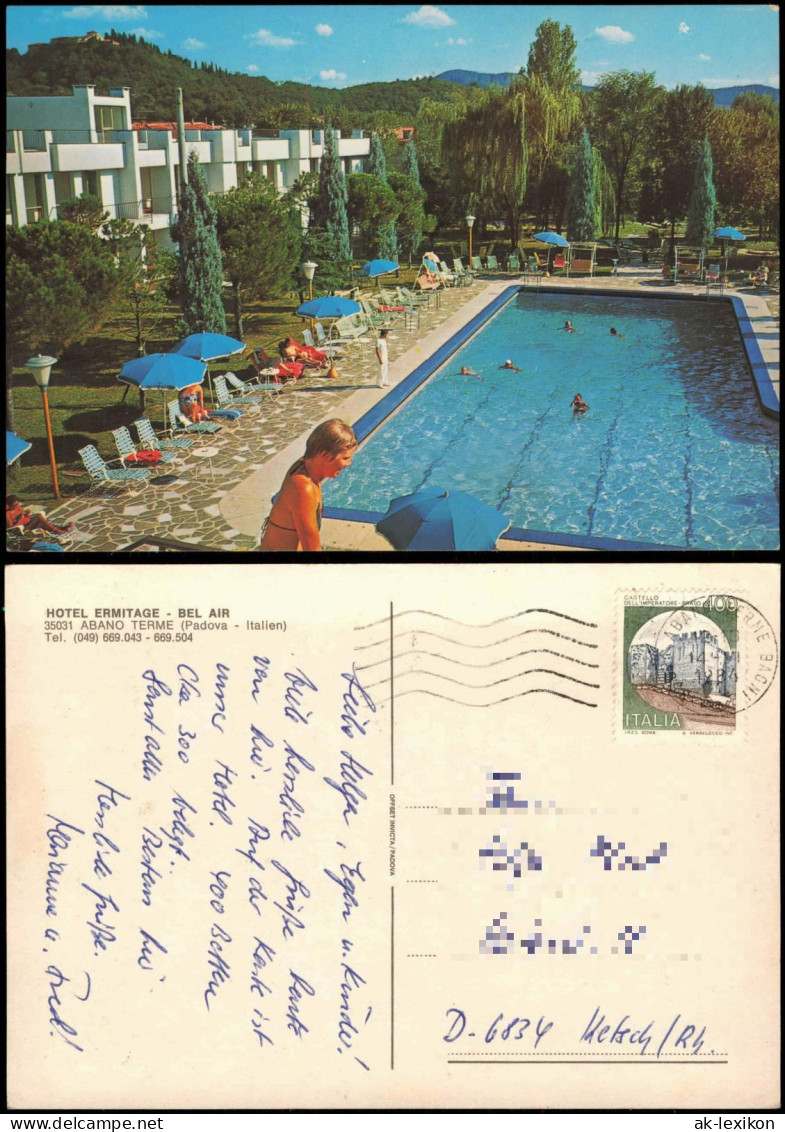 HOTEL ERMITAGE - BEL AIR
35031 ABANO TERME (Padova - Italien)
Tel. (049) 669.043 - 669.504
Liebe Helga, Egon u. Kinder!
Viele herzliche Grüße heute
von hier. Auf der Karte ist
unser Hotel. 400 Betten
Cka 300 belegt.
Sonst alles Bestens hier
Herzliche Grüße.
Marianne u. Fred!
OFFSET INVICTA/PADOVA
CASTELLO
DELL'IMPERATORE - PRATO 400
ITALIA
I.P.Z.S. ROMA
ABANO TERME BAGNI
D-6834 Ketsch/Rh.
ak-ansichtskarten
ak-lexikon